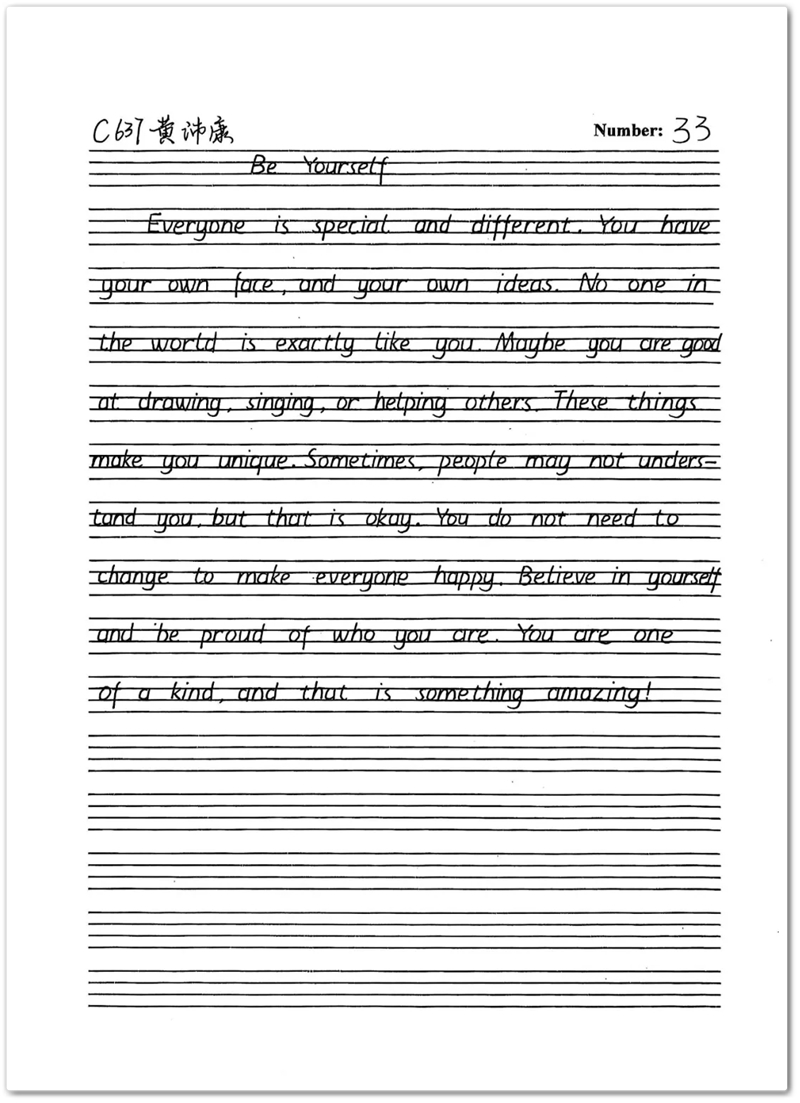 C637 黄沛康 Number: 33
Be Yourself
Everyone is special and different. You have
your own face, and your own ideas. No one in
the world is exactly like you. Maybe you are good
at drawing, singing, or helping others. These things
make you unique. Sometimes, people may not unders-
tand you, but that is okay. You do not need to
change to make everyone happy. Believe in yourself
and be proud of who you are. You are one
of a kind, and that is something amazing!